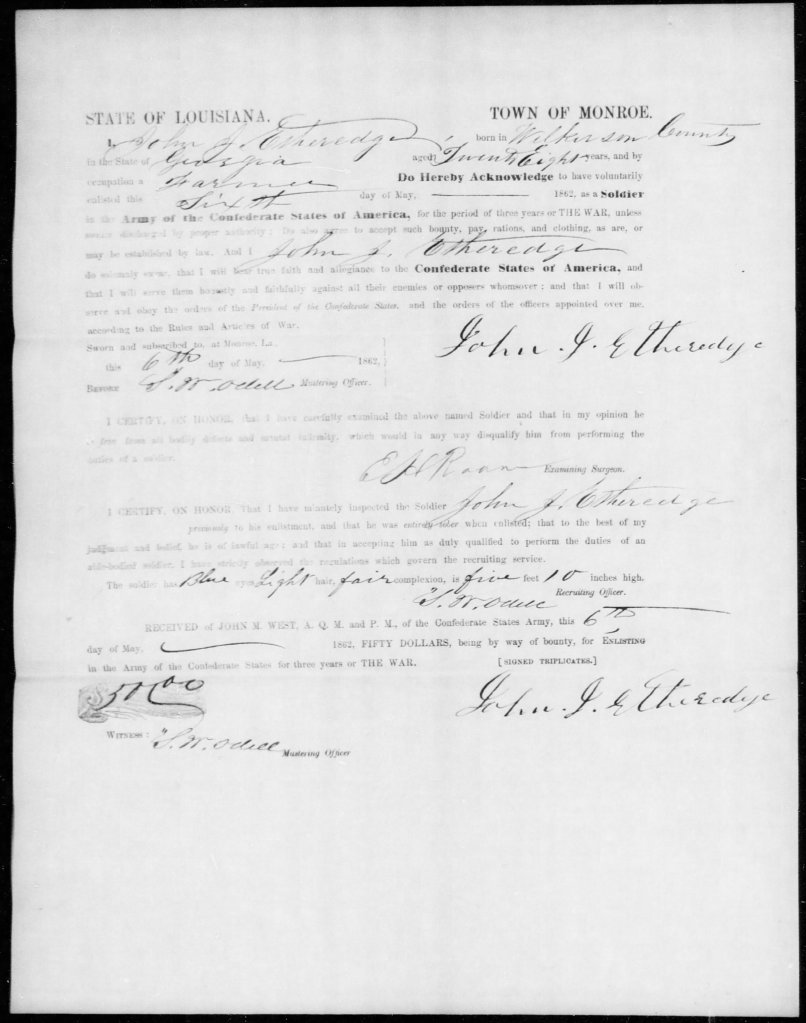 STATE OF LOUISIANA. TOWN OF MONROE.
I, John J. Etheredge, born in Wilkerson County
in the State of Georgia aged Twenty Eight years, and by
occupation a Farmer Do Hereby Acknowledge to have voluntarily
enlisted this Sixth day of May, 1862, as a Soldier
in the Army of the Confederate States of America, for the period of three years or THE WAR, unless
sooner discharged by proper authority; Do also agree to accept such bounty, pay, rations, and clothing, as are, or
may be established by law. And I John J. Etheredge
do solemnly swear, that I will bear true faith and allegiance to the Confederate States of America, and
that I will serve them honestly and faithfully against all their enemies or opposers whomsoever; and that I will ob-
serve and obey the orders of the President of the Confederate States, and the orders of the officers appointed over me,
according to the Rules and Articles of War.
Sworn and subscribed to, at Monroe, La.,
this 6th day of May, 1862,
John. J. Etheredge
BEFORE S. W. Odell Mustering Officer.
I CERTIFY, ON HONOR, that I have carefully examined the above named Soldier and that in my opinion he
is free from all bodily defects and mental infirmity, which would in any way disqualify him from performing the
duties of a soldier.
Examining Surgeon.
I CERTIFY, ON HONOR, That I have minutely inspected the Soldier John J. Etheredge
previously to his enlistment, and that he was entirely sober when enlisted; that to the best of my
judgment and belief, he is of lawful age; and that in accepting him as duly qualified to perform the duties of an
able-bodied soldier, I have strictly observed the regulations which govern the recruiting service.
The soldier has Blue eyes Light hair, fair complexion, is five feet 10 inches high.
S. W. Odell Recruiting Officer.
RECEIVED of JOHN M. WEST, A. Q. M. and P. M., of the Confederate States Army, this 6th
day of May, 1862, FIFTY DOLLARS, being by way of bounty, for ENLISTING
in the Army of the Confederate States for three years or THE WAR. [SIGNED TRIPLICATES.]
$50.00
John. J. Etheredge
WITNESS: S. W. Odell Mustering Officer